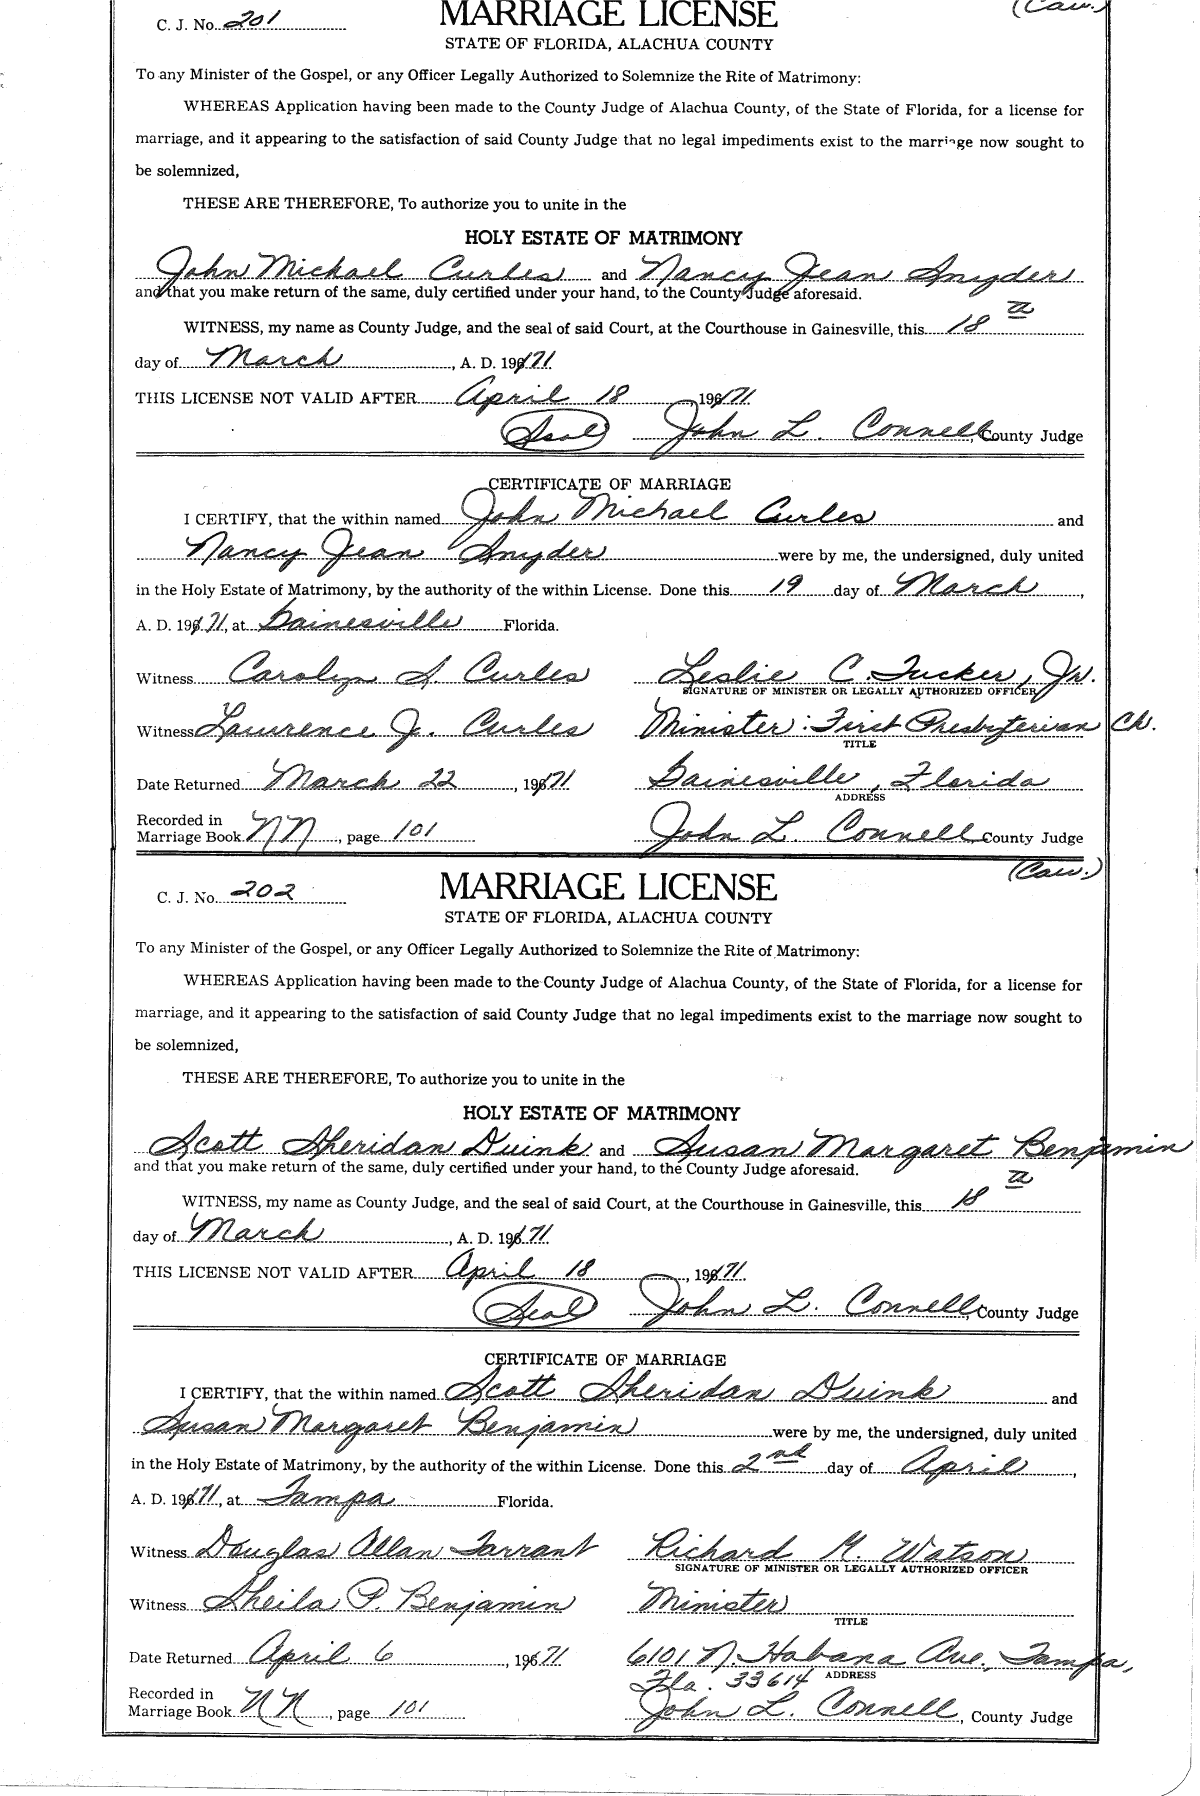 (Cau.)
C. J. No. 201
MARRIAGE LICENSE
STATE OF FLORIDA, ALACHUA COUNTY
To any Minister of the Gospel, or any Officer Legally Authorized to Solemnize the Rite of Matrimony:
WHEREAS Application having been made to the County Judge of Alachua County, of the State of Florida, for a license for
marriage, and it appearing to the satisfaction of said County Judge that no legal impediments exist to the marriage now sought to
be solemnized,
THESE ARE THEREFORE, To authorize you to unite in the
HOLY ESTATE OF MATRIMONY
John Michael Curles and Nancy Jean Snyder
and that you make return of the same, duly certified under your hand, to the County Judge aforesaid.
WITNESS, my name as County Judge, and the seal of said Court, at the Courthouse in Gainesville, this 18
day of March, A. D. 1971
THIS LICENSE NOT VALID AFTER April 18, 1971
(Seal) John L. Connell, County Judge
CERTIFICATE OF MARRIAGE
I CERTIFY, that the within named John Michael Curles and
Nancy Jean Snyder were by me, the undersigned, duly united
in the Holy Estate of Matrimony, by the authority of the within License. Done this 19 day of March,
A. D. 1971, at Gainesville Florida.
Witness Carolyn S. Curles Leslie C. Tucker, Jr.
SIGNATURE OF MINISTER OR LEGALLY AUTHORIZED OFFICER
Witness Lawrence J. Curles Minister: First Presbyterian Ch.
TITLE
Date Returned March 22, 1971 Gainesville, Florida
ADDRESS
Recorded in
Marriage Book NN, page 101 John L. Connell County Judge
(Cau.)
C. J. No. 202
MARRIAGE LICENSE
STATE OF FLORIDA, ALACHUA COUNTY
To any Minister of the Gospel, or any Officer Legally Authorized to Solemnize the Rite of Matrimony:
WHEREAS Application having been made to the County Judge of Alachua County, of the State of Florida, for a license for
marriage, and it appearing to the satisfaction of said County Judge that no legal impediments exist to the marriage now sought to
be solemnized,
THESE ARE THEREFORE, To authorize you to unite in the
HOLY ESTATE OF MATRIMONY
Scott Sheridan Duink and Susan Margaret Benjamin
and that you make return of the same, duly certified under your hand, to the County Judge aforesaid.
WITNESS, my name as County Judge, and the seal of said Court, at the Courthouse in Gainesville, this 18
day of March, A. D. 1971
THIS LICENSE NOT VALID AFTER April 18, 1971
(Seal) John L. Connell, County Judge
CERTIFICATE OF MARRIAGE
I CERTIFY, that the within named Scott Sheridan Duink and
Susan Margaret Benjamin were by me, the undersigned, duly united
in the Holy Estate of Matrimony, by the authority of the within License. Done this 2nd day of April,
A. D. 1971, at Tampa Florida.
Witness Douglas Allan Tarrant Richard M. Watson
SIGNATURE OF MINISTER OR LEGALLY AUTHORIZED OFFICER
Witness Sheila P. Benjamin Minister
TITLE
Date Returned April 6, 1971 6101 N. Habana Ave., Tampa,
Fla. 33614 ADDRESS
Recorded in
Marriage Book NN, page 101 John L. Connell, County Judge